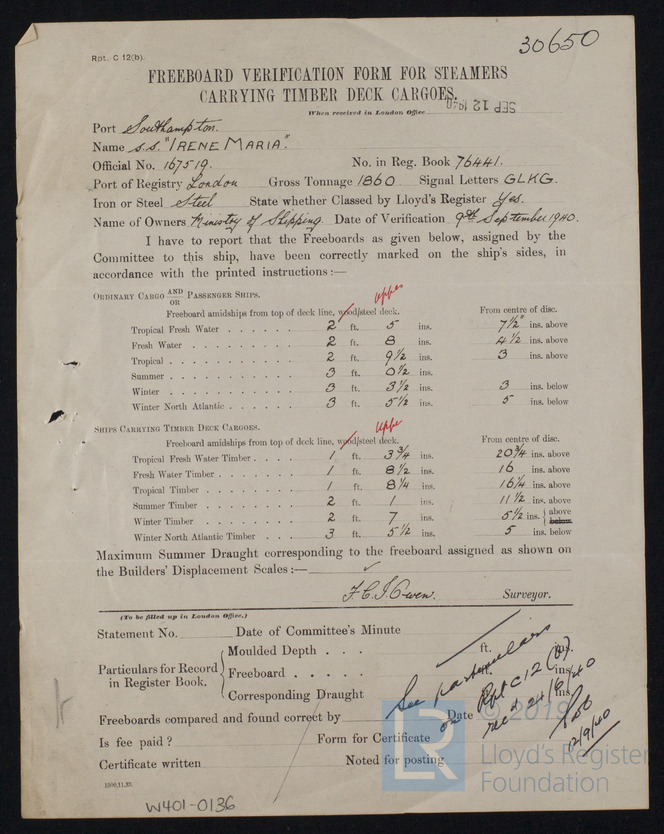 Rpt. C 12(b).
30650
FREEBOARD VERIFICATION FORM FOR STEAMERS
CARRYING TIMBER DECK CARGOES.
When received in London Office SEP 12 1940
Port Southampton.
Name S.S. "IRENE MARIA".
Official No. 167519. No. in Reg. Book 76441.
Port of Registry London Gross Tonnage 1860 Signal Letters GLKG.
Iron or Steel Steel State whether Classed by Lloyd's Register Yes.
Name of Owners Ministry of Shipping Date of Verification 9th September 1940.
I have to report that the Freeboards as given below, assigned by the
Committee to this ship, have been correctly marked on the ship's sides, in
accordance with the printed instructions :—
ORDINARY CARGO AND OR PASSENGER SHIPS.
Upper
Freeboard amidships from top of deck line, wood/steel deck. From centre of disc.
Tropical Fresh Water . . . . . . 2 ft. 5 ins. 7 1/2" ins. above
Fresh Water . . . . . . . . 2 ft. 8 ins. 4 1/2 ins. above
Tropical . . . . . . . . . 2 ft. 9 1/2 ins. 3 ins. above
Summer . . . . . . . . . 3 ft. 0 1/2 ins.
Winter . . . . . . . . . 3 ft. 3 1/2 ins. 3 ins. below
Winter North Atlantic . . . . . 3 ft. 5 1/2 ins. 5 ins. below
SHIPS CARRYING TIMBER DECK CARGOES.
Uppe
Freeboard amidships from top of deck line, wood/steel deck. From centre of disc.
Tropical Fresh Water Timber . . . . 1 ft. 3 3/4 ins. 20 3/4 ins. above
Fresh Water Timber . . . . . . 1 ft. 8 1/2 ins. 16 ins. above
Tropical Timber . . . . . . . 1 ft. 8 1/4 ins. 16 1/4 ins. above
Summer Timber . . . . . . . 2 ft. 1 ins. 11 1/2 ins. above
Winter Timber . . . . . . . 2 ft. 7 ins. 5 1/2 ins. { above below
Winter North Atlantic Timber . . . 3 ft. 5 1/2 ins. 5 ins. below
Maximum Summer Draught corresponding to the freeboard assigned as shown on
the Builders' Displacement Scales :—
F.C.J. Owen. Surveyor.
(To be filled up in London Office.)
Statement No. Date of Committee's Minute
Particulars for Record in Register Book.
Moulded Depth . . . ft. ins.
Freeboard . . . . . ft. ins.
Corresponding Draught ins.
See particulars
on Rpt C 12 (b)
recd 24/6/40
12/9/40
Freeboards compared and found correct by Date
Is fee paid ? Form for Certificate
Certificate written Noted for posting
W401-0136
LR
© 2019
Lloyd's Register
Foundation